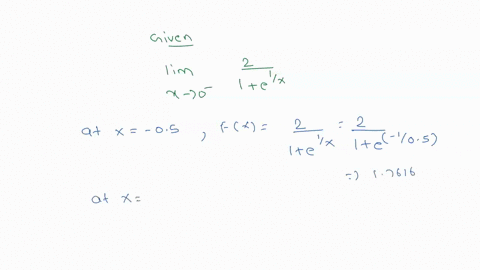 Given
lim x→0⁻ 2/(1+e^(1/x))
at x = -0.5 , f(x) = 2/(1+e^(1/x)) = 2/(1+e^(-1/0.5))
⇒ 1.7616
at x =